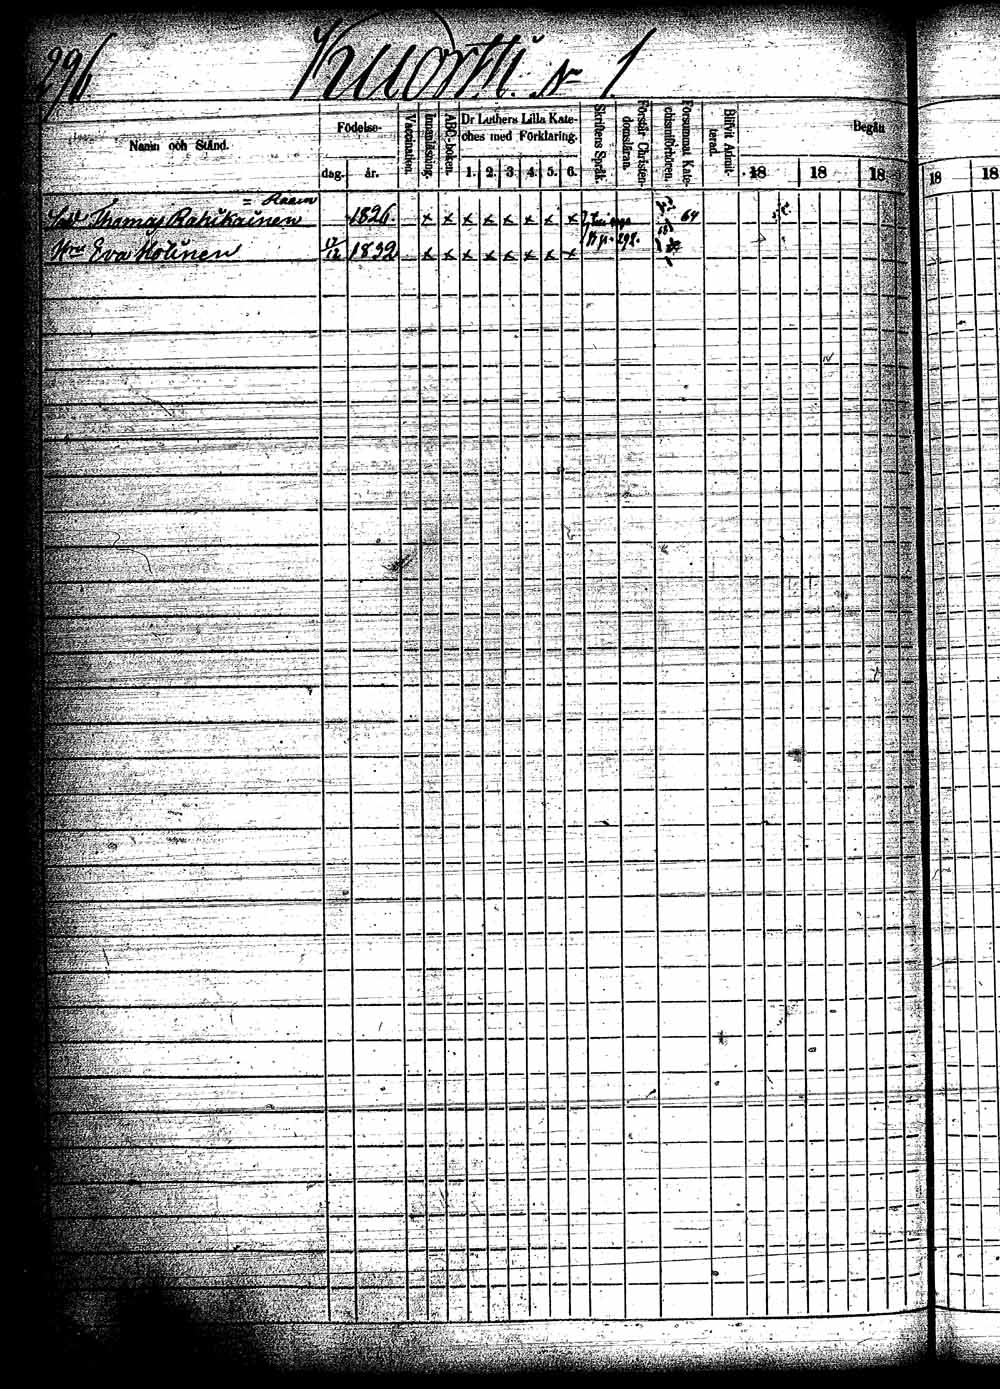 296
Kuortti № 1
Namn och Stånd.
Födelse-
dag. år.
Vaccination.
Innanläsning.
ABC-boken.
Dr Luthers Lilla Kate-
ches med Förklaring.
1. 2. 3. 4. 5. 6.
Skriftens Språk.
Förstår Christen-
domsläran.
Försummat Kate-
chismiförhören.
Blifvit Admit-
terad.
Begån
18 18 18 18 18
Thomas Rahikainen 1826. x x x x x x x x 64
Hru Eva 17/12 1832 x x x x x x x x
298.